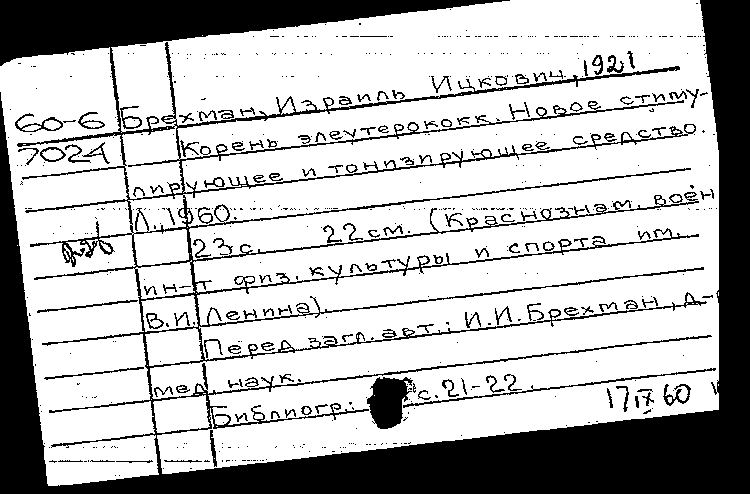 60-6 Брехман, Израиль Ицкович, 1921
7024 Корень элеутерококк. Новое стиму-
лирующее и тонизирующее средство.
Л., 1960.
23 с. 22 см. (Краснознам. воен
ин-т физ. культуры и спорта им.
В.И. Ленина).
Перед загл. авт.: И.И. Брехман, д-
мед. наук.
Библиогр: с. 21-22.
17 IX 60